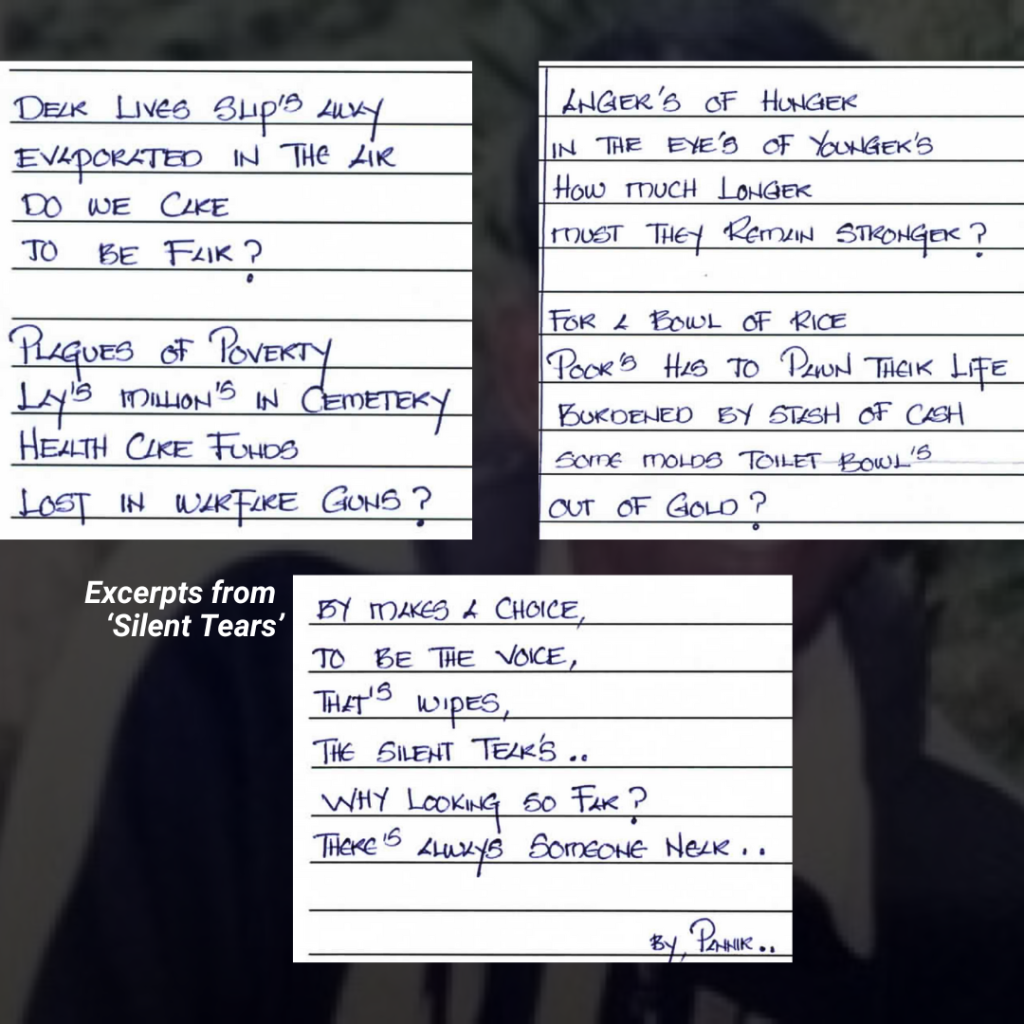 DEAR LIVES SLIP'S AWAY
EVAPORATED IN THE AIR
DO WE CARE
TO BE FAIR?
PLAGUES OF POVERTY
LAY'S MILLION'S IN CEMETERY
HEALTH CARE FUNDS
LOST IN WARFARE GUNS?
ANGER'S OF HUNGER
IN THE EYE'S OF YOUNGER'S
HOW MUCH LONGER
MUST THEY REMAIN STRONGER?
FOR A BOWL OF RICE
POOR'S HAS TO PAWN THEIR LIFE
BURDENED BY STASH OF CASH
SOME MOLDS TOILET BOWL'S
OUT OF GOLD?
Excerpts from
'Silent Tears'
BY MAKES A CHOICE,
TO BE THE VOICE,
THAT'S WIPES,
THE SILENT TEAR'S..
WHY LOOKING SO FAR?
THERE'S ALWAYS SOMEONE NEAR..
BY, PANNIR..